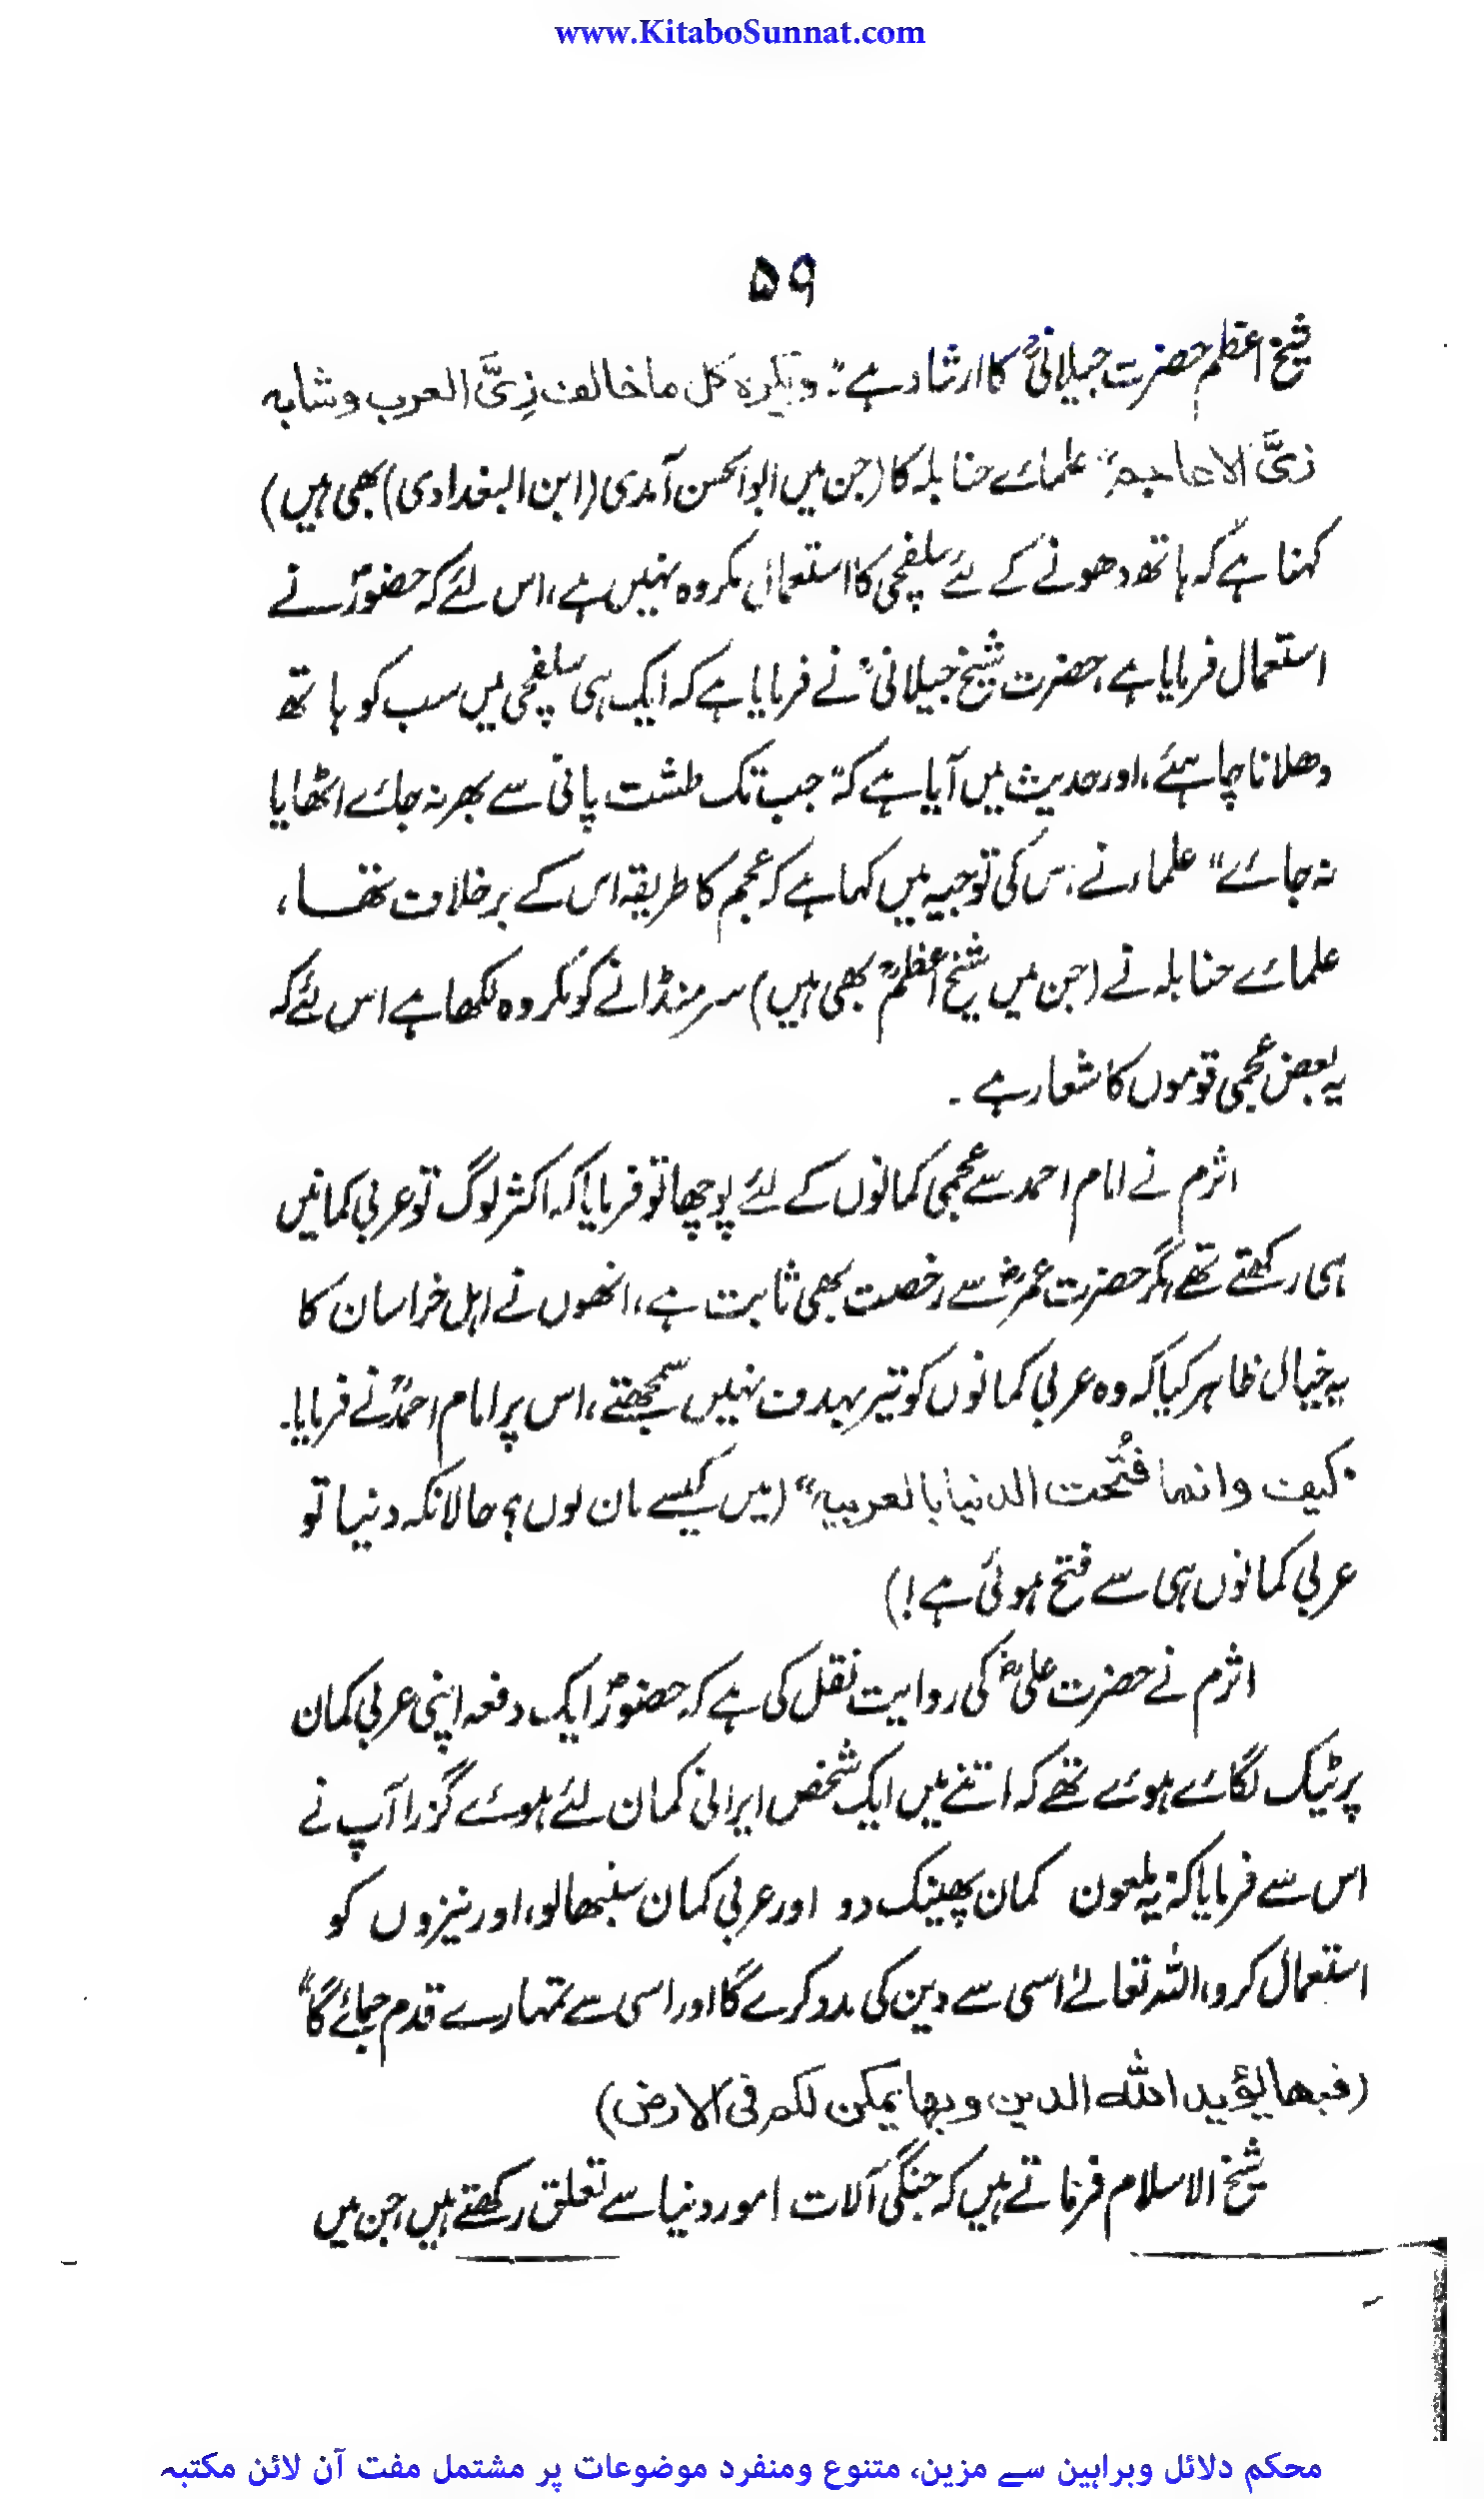 www.KitaboSunnat.com
۵۹
شیخ اعظم حضرت جیلانیؒ کا ارشاد ہے: "ویکرہ کل ما خالف زِیَّ العرب وشابہ
زیَّ الاعاجم" علمائے حنابلہ کا (جن میں ابوالحسن آمدی (ابن البغدادی) بھی ہیں)
کہنا ہے کہ ہاتھ دھونے کے لئے سلفچی کا استعمال مکروہ نہیں ہے، اس لئے کہ حضورؐ نے
استعمال فرمایا ہے، حضرت شیخ جیلانیؒ نے فرمایا ہے کہ ایک ہی سلفچی میں سب کو ہاتھ
دھلانا چاہئے، اور حدیث میں آیا ہے کہ "جب تک طشت پانی سے بھر نہ جائے اٹھایا
نہ جائے" علماء نے اس کی توجیہ میں کہا ہے کہ عجم کا طریقہ اس کے برخلاف تھا،
علمائے حنابلہ نے (جن میں شیخ اعظمؒ بھی ہیں) سر منڈانے کو مکروہ لکھا ہے اس لئے کہ
یہ بعض عجمی قوموں کا شعار ہے ۔
اثرم نے امام احمد سے عجمی کمانوں کے لئے پوچھا تو فرمایا کہ اکثر لوگ تو عربی کمانیں
ہی رکھتے تھے مگر حضرت عمرؓ سے رخصت بھی ثابت ہے، انھوں نے اہل خراسان کا
یہ خیال ظاہر کیا کہ وہ عربی کمانوں کو تیر بہدف نہیں سمجھتے، اس پر امام احمدؒ نے فرمایا۔
"کیف وانما فُتحت الدنیا بالعربیہ" (میں کیسے مان لوں؟ حالانکہ دنیا تو
عربی کمانوں ہی سے فتح ہوئی ہے!)
اثرم نے حضرت علیؓ کی روایت نقل کی ہے کہ حضورؐ ایک دفعہ اپنی عربی کمان
پر ٹیک لگائے ہوئے تھے کہ اتنے میں ایک شخص ایرانی کمان لئے ہوئے گزرا آپ نے
اس سے فرمایا کہ "یہ ملعون کمان پھینک دو اور عربی کمان سنبھالو، اور نیزوں کو
استعمال کرو، اللہ تعالےٰ اسی سے دین کی مدد کرے گا اور اسی سے تمہارے قدم جمائے گا"
(فبھا یؤید اللہ الدین وبھا یمکن لکم فی الارض)
شیخ الاسلام فرماتے ہیں کہ جنگی آلات امور دنیا سے تعلق رکھتے ہیں، جن میں
محکم دلائل وبراہین سے مزین، متنوع ومنفرد موضوعات پر مشتمل مفت آن لائن مکتبہ